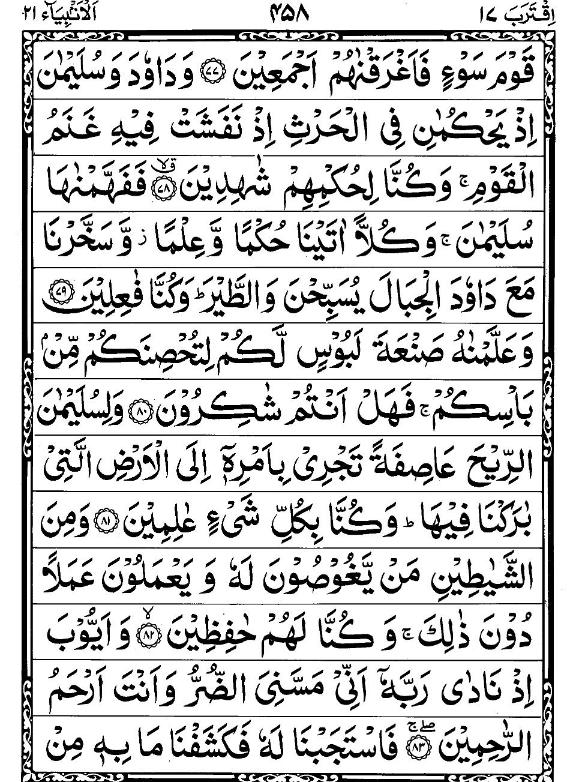 اقترب ١٧ ٤٥٨ الانبیآء ٢١
قَوْمَ سَوْءٍ فَاَغْرَقْنٰهُمْ اَجْمَعِيْنَ ﴿٧٧﴾ وَ دَاوٗدَ وَ سُلَيْمٰنَ
اِذْ يَحْكُمٰنِ فِي الْحَرْثِ اِذْ نَفَشَتْ فِيْهِ غَنَمُ
الْقَوْمِ ۚ وَ كُنَّا لِحُكْمِهِمْ شٰهِدِيْنَ ﴿٧٨﴾ۙ فَفَهَّمْنٰهَا
سُلَيْمٰنَ ۚ وَ كُلًّا اٰتَيْنَا حُكْمًا وَّ عِلْمًا ز وَّ سَخَّرْنَا
مَعَ دَاوٗدَ الْجِبَالَ يُسَبِّحْنَ وَ الطَّيْرَ ؕ وَ كُنَّا فٰعِلِيْنَ ﴿٧٩﴾
وَ عَلَّمْنٰهُ صَنْعَةَ لَبُوْسٍ لَّكُمْ لِتُحْصِنَكُمْ مِّنْۢ
بَاْسِكُمْ ۚ فَهَلْ اَنْتُمْ شٰكِرُوْنَ ﴿٨٠﴾ وَ لِسُلَيْمٰنَ
الرِّيْحَ عَاصِفَةً تَجْرِيْ بِاَمْرِهٖۤ اِلَى الْاَرْضِ الَّتِيْ
بٰرَكْنَا فِيْهَا ؕ وَ كُنَّا بِكُلِّ شَيْءٍ عٰلِمِيْنَ ﴿٨١﴾ وَ مِنَ
الشَّيٰطِيْنِ مَنْ يَّغُوْصُوْنَ لَهٗ وَ يَعْمَلُوْنَ عَمَلًا
دُوْنَ ذٰلِكَ ۚ وَ كُنَّا لَهُمْ حٰفِظِيْنَ ﴿٨٢﴾ۙ وَ اَيُّوْبَ
اِذْ نَادٰى رَبَّهٗۤ اَنِّيْ مَسَّنِيَ الضُّرُّ وَ اَنْتَ اَرْحَمُ
الرّٰحِمِيْنَ ﴿٨٣﴾ۖۚ فَاسْتَجَبْنَا لَهٗ فَكَشَفْنَا مَا بِهٖ مِنْ